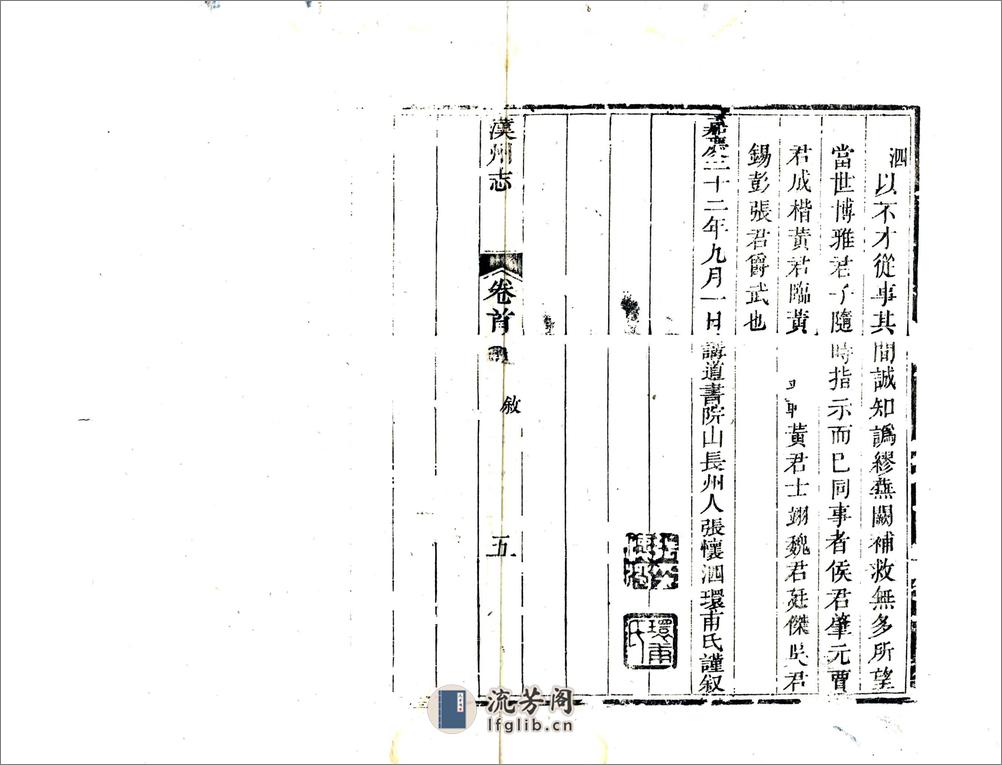 泗以不才從事其間誠知譌繆蕪闕補救無多所望
當世博雅君子隨時指示而已同事者侯君肇元曹
君成楷黃君臨黃黃君士翊魏君廷傑吳君
錫彭張君爵武也
二十二年九月一日講道書院山長州人張懷泗環甫氏謹叙
環甫氏
漢州志
卷首
敘
五
流芳阁
lfglib.cn